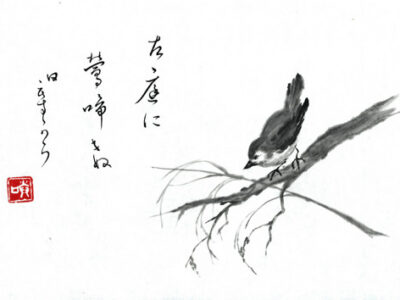 古庭に
鶯啼きぬ
日もすがら